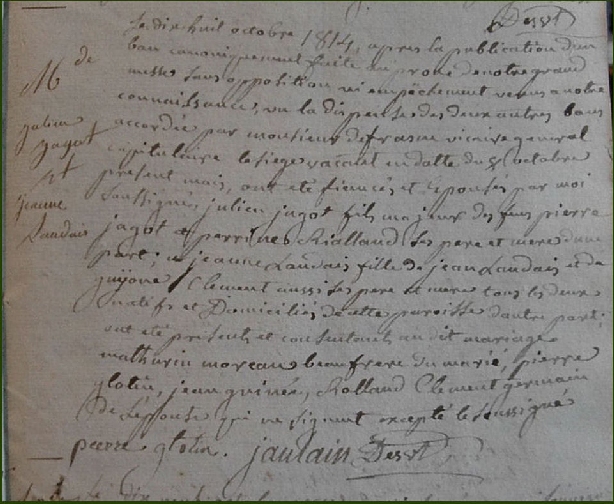 Le dix huit octobre 1814, apres la publication d'un
ban canoniquement faite au prone de notre grand
messe sans opposition ni empêchement venus a notre
connaissance, vu la dispense des deux autres bans
accordée par monsieur vicaire general
capitulaire le siege vacant en datte du octobre
present mois, ont été fiancés et epousés par moi
soussigné, julien jagot fils majeur des feus pierre
jagot et perrine Rialland ses pere et mere d'une
part; et jeanne Landais fille de jean Landais et de
guyonne Clement aussi ses pere et mere tous les deux
natifs et Domiciliés de cette paroisse d'autre part;
ont été presents et consentants au dit mariage
mathurin moreau beaufrere du marié, pierre
glotin, jean guinée, Rolland Clement germain
de L'épouse qui ne signent excepté le soussigné
pierre glotin. jaulain
M de
julien
jagot
et
jeanne
Landais